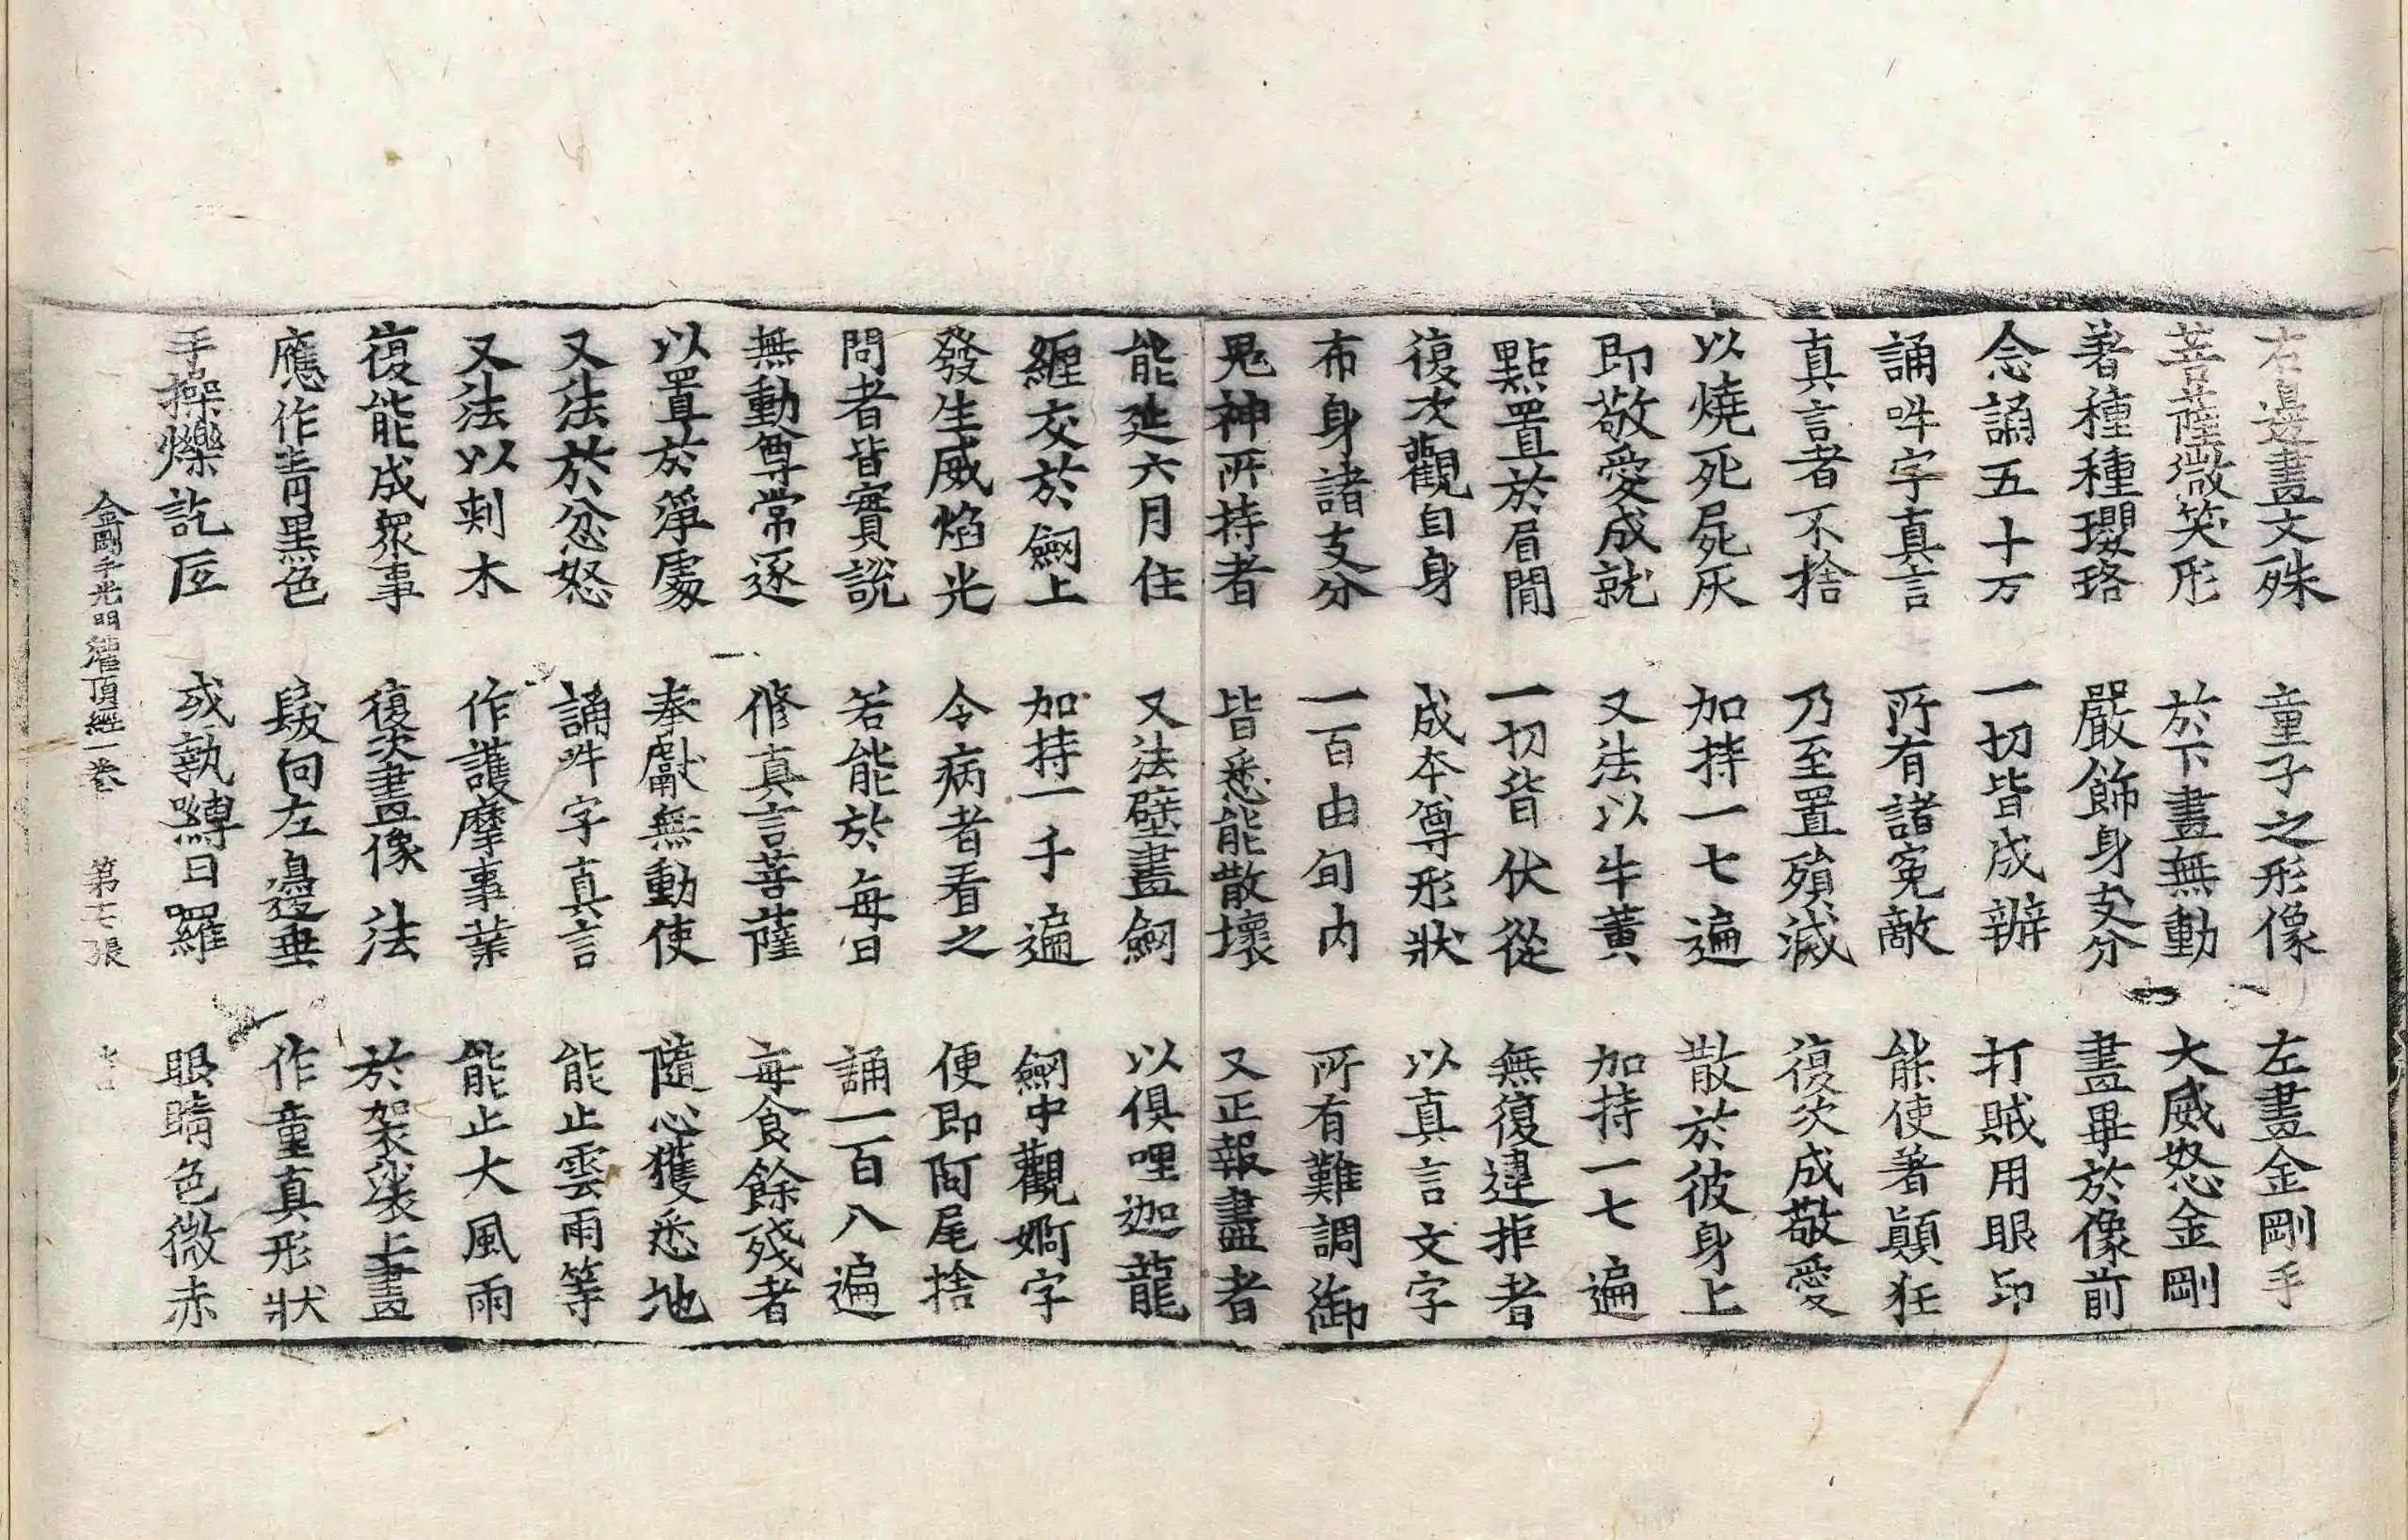 右邊畫文殊 童子之形像 左畫金剛手
菩薩微笑形 於下畫無動 大威怒金剛
著種種瓔珞 嚴飾身支分 畫畢於像前
念誦五十万 一切皆成辦 打賊用眼印
誦吽字真言 所有諸冤敵 能使著顛狂
真言者不捨 乃至置殞滅 復次成敬愛
以燒死屍灰 加持一七遍 散於彼身上
即敬愛成就 又法以牛黃 加持一七遍
點置於眉間 一切皆伏從 無復違拒者
復次觀自身 成本尊形狀 以真言文字
布身諸支分 一百由旬内 所有難調御
鬼神所持者 皆悉能散壞 又正報盡者
能延六月住 又法壁畫劒 以俱哩迦龍
纏交於劒上 加持一千遍 劒中觀婀字
發生威焰光 令病者看之 便即阿尾捨
問者皆實說 若能於每日 誦一百八遍
無動尊常逐 修真言菩薩 每食餘殘者
以置於淨處 奉獻無動使 隨心獲悉地
又法於忿怒 誦吽字真言 能止雲雨等
又法以刺木 作護摩事業 能止大風雨
復能成眾事 復次畫像法 於袈裟上畫
應作青黑色 髮向左邊垂 作童真形狀
手操爍訖底 或執嚩日羅 眼睛色微赤
金剛手光明灌頂經一卷 第七張